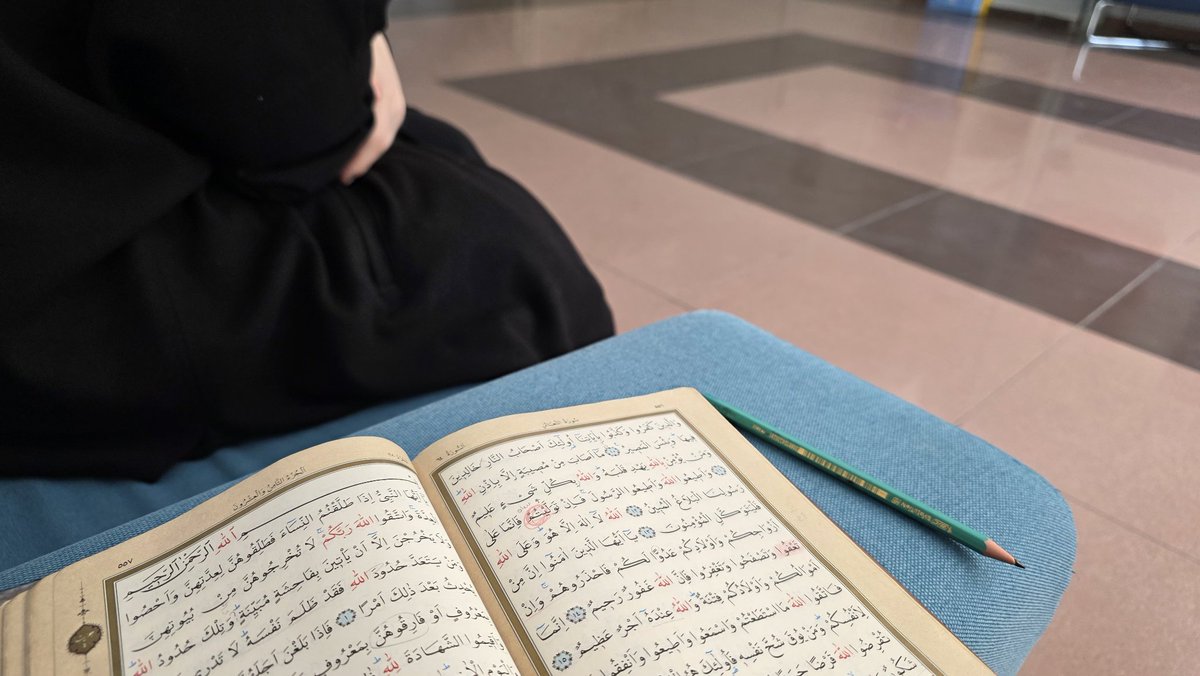 سُورَةُ التَّغَابُنِ
السُّورَة ٦٤
وَالَّذِينَ كَفَرُوا وَكَذَّبُوا بِآيَاتِنَا أُولٰئِكَ أَصْحَابُ النَّارِ خَالِدِينَ
فِيهَا وَبِئْسَ الْمَصِيرُ مَا أَصَابَ مِنْ مُصِيبَةٍ إِلَّا بِإِذْنِ اللّٰهِ
وَمَنْ يُؤْمِنْ بِاللّٰهِ يَهْدِ قَلْبَهُ وَاللّٰهُ بِكُلِّ شَيْءٍ عَلِيمٌ
وَأَطِيعُوا اللّٰهَ وَأَطِيعُوا الرَّسُولَ فَإِنْ تَوَلَّيْتُمْ فَإِنَّمَا عَلَى
رَسُولِنَا الْبَلَاغُ الْمُبِينُ اللّٰهُ لَا إِلٰهَ إِلَّا هُوَ وَعَلَى اللّٰهِ
فَلْيَتَوَكَّلِ الْمُؤْمِنُونَ يَا أَيُّهَا الَّذِينَ آمَنُوا إِنَّ مِنْ
أَزْوَاجِكُمْ وَأَوْلَادِكُمْ عَدُوًّا لَكُمْ فَاحْذَرُوهُمْ وَإِنْ
تَعْفُوا وَتَصْفَحُوا وَتَغْفِرُوا فَإِنَّ اللّٰهَ غَفُورٌ رَحِيمٌ إِنَّمَا
أَمْوَالُكُمْ وَأَوْلَادُكُمْ فِتْنَةٌ وَاللّٰهُ عِنْدَهُ أَجْرٌ عَظِيمٌ
فَاتَّقُوا اللّٰهَ مَا اسْتَطَعْتُمْ وَاسْمَعُوا وَأَطِيعُوا وَأَنْفِقُوا
لِأَنْفُسِكُمْ وَمَنْ يُوقَ شُحَّ نَفْسِهِ فَأُولٰئِكَ هُمُ
تُقْرِضُوا اللّٰهَ قَرْضًا
اَلْجُزْءُ الثَّامِنُ وَالْعِشْرُونَ
٥٥٧
اللّٰهِ الرَّحْمٰنِ الرَّحِيمِ
أَيُّهَا النَّبِيُّ إِذَا طَلَّقْتُمُ النِّسَاءَ فَطَلِّقُوهُنَّ لِعِدَّتِهِنَّ وَأَحْصُوا
وَاتَّقُوا اللّٰهَ رَبَّكُمْ لَا تُخْرِجُوهُنَّ مِنْ بُيُوتِهِنَّ
يَخْرُجْنَ إِلَّا أَنْ يَأْتِينَ بِفَاحِشَةٍ مُبَيِّنَةٍ وَتِلْكَ حُدُودُ اللّٰهِ
وَمَنْ يَتَعَدَّ حُدُودَ اللّٰهِ فَقَدْ ظَلَمَ نَفْسَهُ لَا تَدْرِي
بَعْدَ ذٰلِكَ أَمْرًا فَإِذَا بَلَغْنَ أَجَلَهُنَّ
أَوْ فَارِقُوهُنَّ بِمَعْرُوفٍ
الشَّهَادَةَ لِلّٰهِ